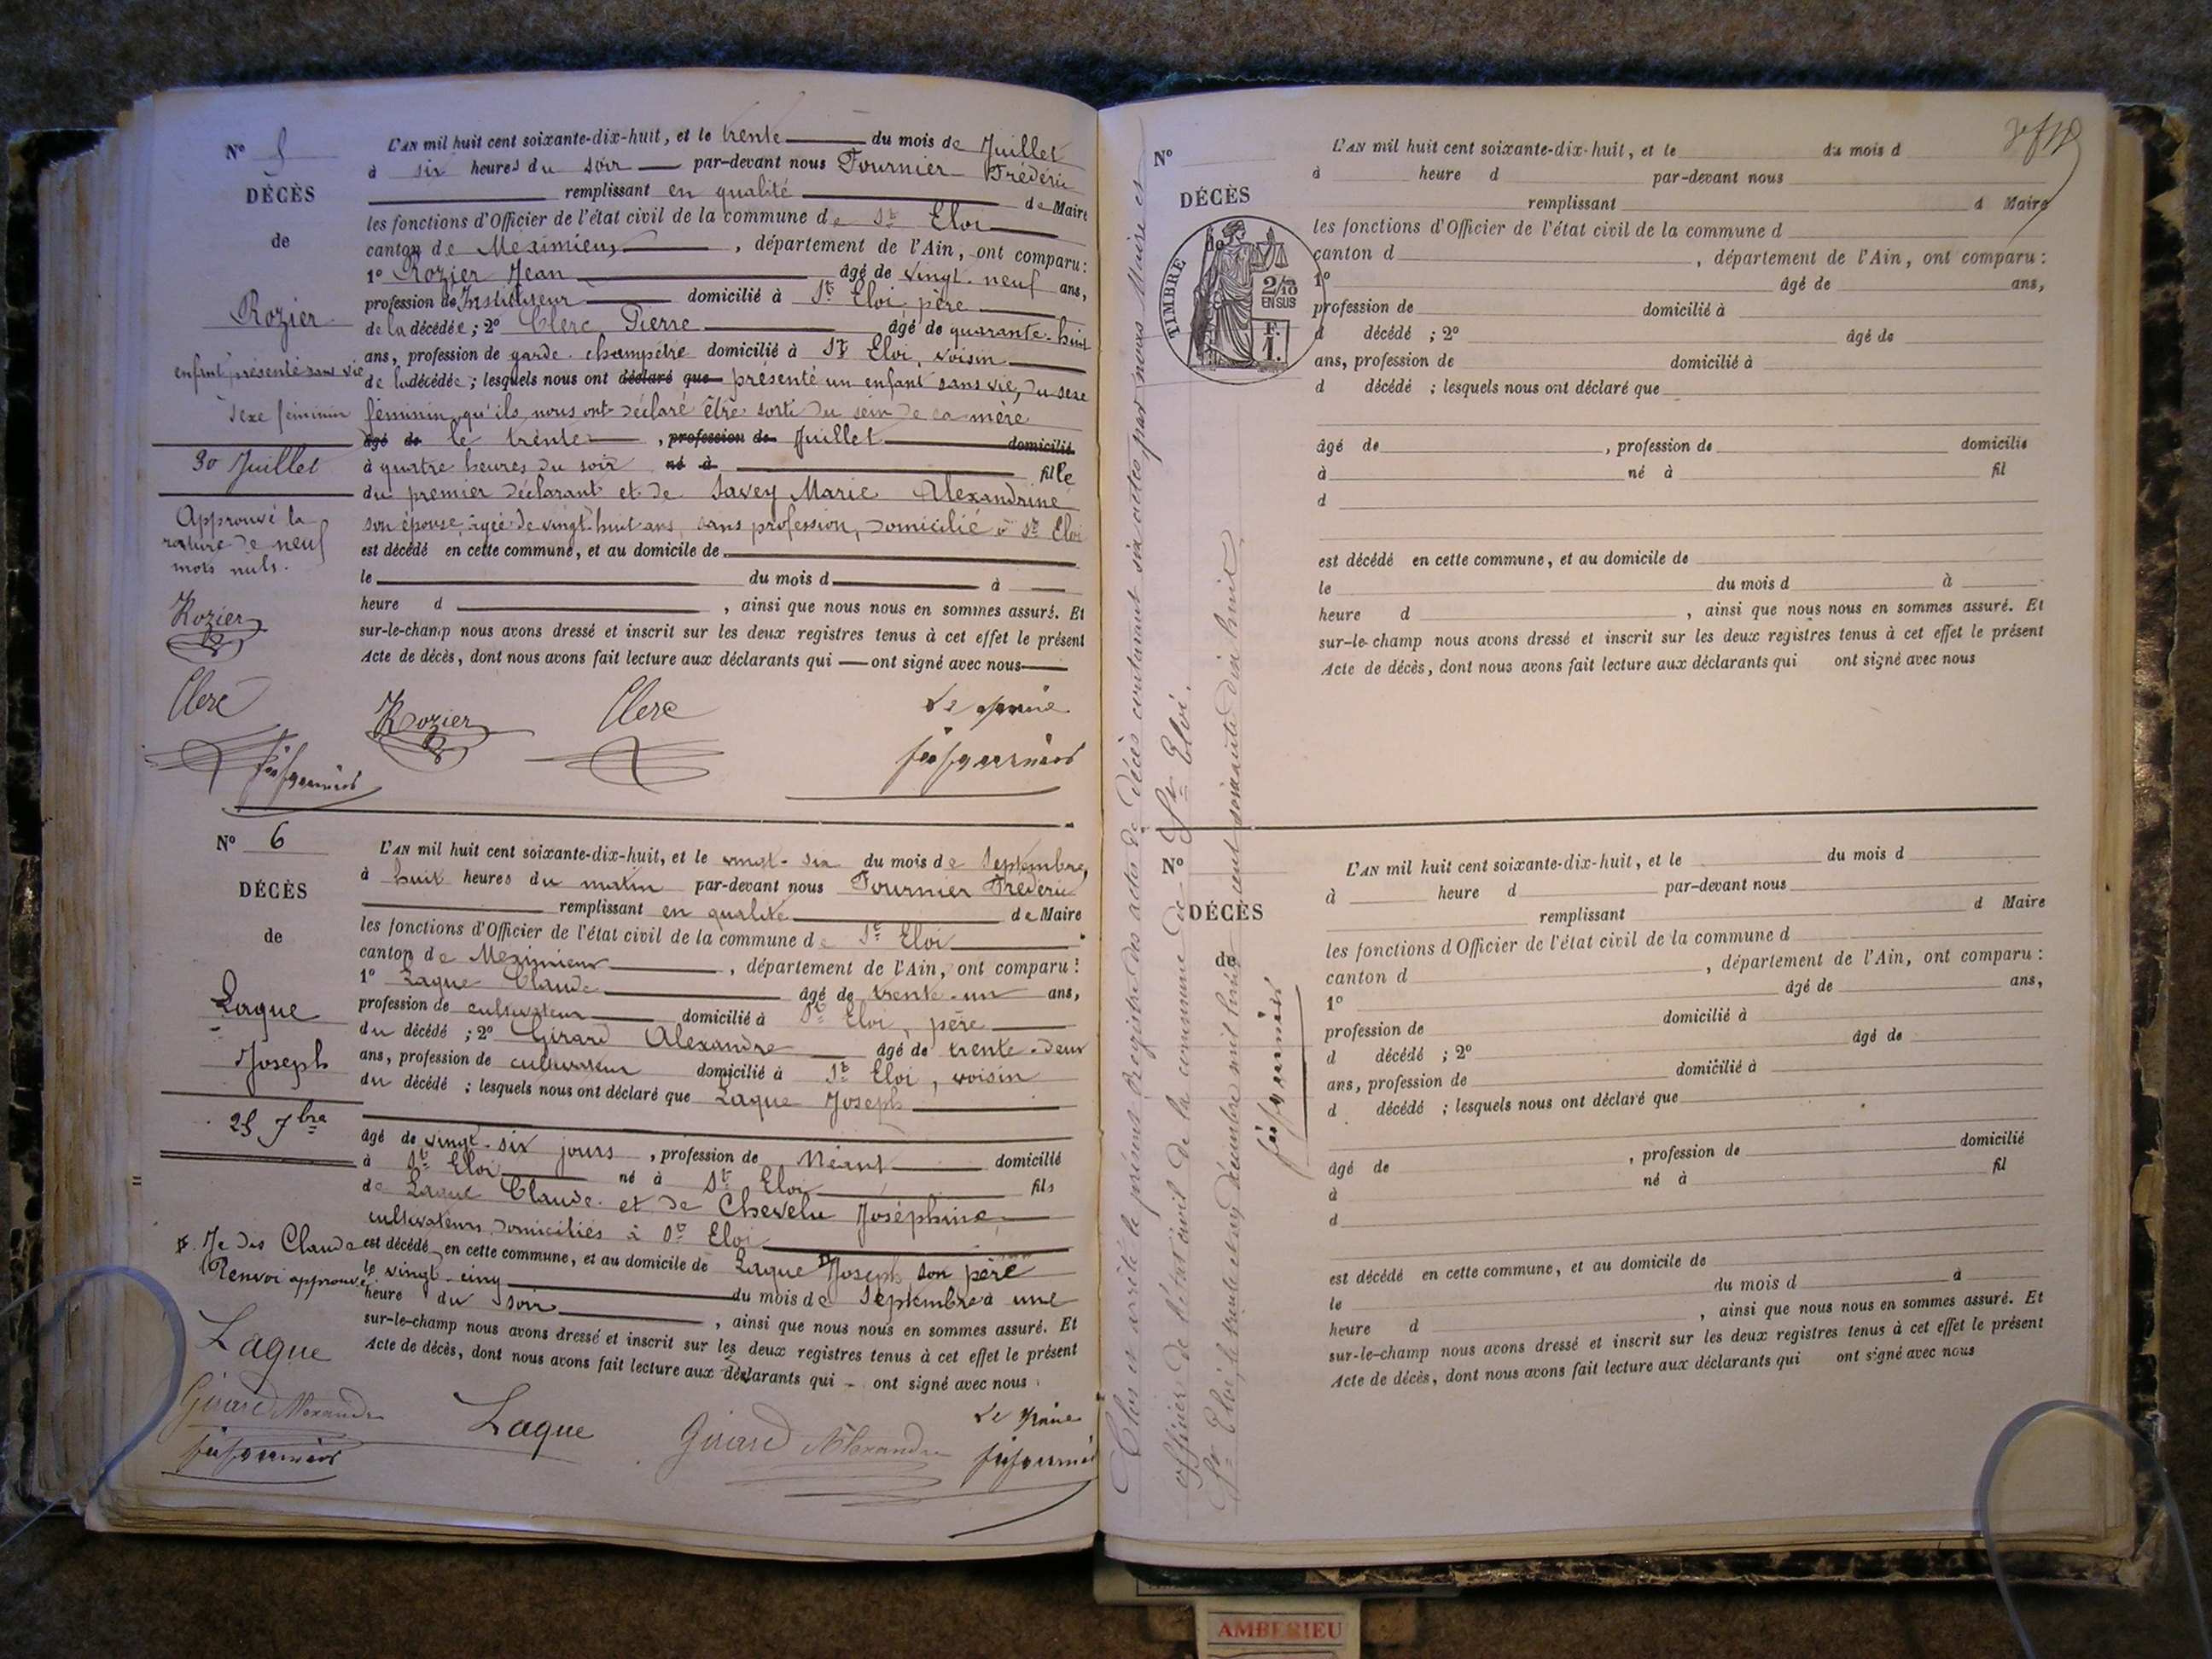 N° 5
DÉCÈS
de
Rozier
enfant présenté sans vie
Sexe féminin
30 Juillet
Approuvé la
rature de neuf
mots nuls.
Rozier
Clerc
L'AN mil huit cent soixante-dix-huit, et le trente du mois de Juillet
à six heures du soir par-devant nous Fournier Frédéric
remplissant en qualité de Maire
les fonctions d'Officier de l'état civil de la commune de St Eloi
canton de Meximieux, département de l'Ain, ont comparu :
1° Rozier Jean âgé de vingt-neuf ans,
profession de Instituteur domicilié à St Eloi, père
de la décédée ; 2° Clerc Pierre âgé de quarante-huit
ans, profession de garde-champêtre domicilié à St Eloi, voisin
de la décédée ; lesquels nous ont déclaré que présenté un enfant sans vie, du sexe
féminin, qu'ils nous ont déclaré être sorti du sein de sa mère
âgé de le trente, profession de Juillet domicilié
à quatre heures du soir né à fille
du premier déclarant et de Savey Marie Alexandrine
son épouse, âgée de vingt-huit ans, sans profession, domicilié à St Eloi
est décédé en cette commune, et au domicile de
le du mois d à
heure d , ainsi que nous nous en sommes assuré. Et
sur-le-champ nous avons dressé et inscrit sur les deux registres tenus à cet effet le présent
Acte de décès, dont nous avons fait lecture aux déclarants qui ont signé avec nous
Rozier Clerc Le maire
N° 6
DÉCÈS
de
Laque
Joseph
25 7bre
Je dis Claude
Renvoi approuvé.
Laque
Girard Alexandre
L'AN mil huit cent soixante-dix-huit, et le vingt-six du mois de Septembre,
à huit heures du matin par-devant nous Fournier Frédéric
remplissant en qualité de Maire
les fonctions d'Officier de l'état civil de la commune de St Eloi
canton de Meximieux, département de l'Ain, ont comparu :
1° Laque Claude âgé de trente-un ans,
profession de cultivateur domicilié à St Eloi, père
du décédé ; 2° Girard Alexandre âgé de trente-deux
ans, profession de cultivateur domicilié à St Eloi, voisin
du décédé ; lesquels nous ont déclaré que Laque Joseph
âgé de vingt-six jours, profession de Néant domicilié
à St Eloi né à St Eloi fils
de Laque Claude et de Chevelu Joséphine,
cultivateurs domiciliés à St Eloi
est décédé en cette commune, et au domicile de Laque Joseph son père
le vingt-cinq du mois de Septembre à une
heure du soir, ainsi que nous nous en sommes assuré. Et
sur-le-champ nous avons dressé et inscrit sur les deux registres tenus à cet effet le présent
Acte de décès, dont nous avons fait lecture aux déclarants qui ont signé avec nous
Laque Girard Alexandre Le Maire
Clos et arrêté le présent Registre des actes de Décès contenant six actes, par nous Maire et
officier de l'état civil de la commune de St Eloi.
St Eloi, le trente et un décembre mil huit cent soixante dix huit.
N°
DÉCÈS
de
TIMBRE
2/10
EN SUS
1 F.
L'AN mil huit cent soixante-dix-huit, et le du mois d
à heure d par-devant nous
remplissant d Maire
les fonctions d'Officier de l'état civil de la commune d
canton d , département de l'Ain, ont comparu :
1° âgé de ans,
profession de domicilié à
d décédé ; 2° âgé de
ans, profession de domicilié à
d décédé ; lesquels nous ont déclaré que
âgé de , profession de domicilié
à né à fil
d
est décédé en cette commune, et au domicile de
le du mois d à
heure d , ainsi que nous nous en sommes assuré. Et
sur-le-champ nous avons dressé et inscrit sur les deux registres tenus à cet effet le présent
Acte de décès, dont nous avons fait lecture aux déclarants qui ont signé avec nous
N°
DÉCÈS
de
L'AN mil huit cent soixante-dix-huit, et le du mois d
à heure d par-devant nous
remplissant d Maire
les fonctions d'Officier de l'état civil de la commune d
canton d , département de l'Ain, ont comparu :
1° âgé de ans,
profession de domicilié à
d décédé ; 2° âgé de
ans, profession de domicilié à
d décédé ; lesquels nous ont déclaré que
âgé de , profession de domicilié
à né à fil
d
est décédé en cette commune, et au domicile de
le du mois d à
heure d , ainsi que nous nous en sommes assuré. Et
sur-le-champ nous avons dressé et inscrit sur les deux registres tenus à cet effet le présent
Acte de décès, dont nous avons fait lecture aux déclarants qui ont signé avec nous
AMBERIEU